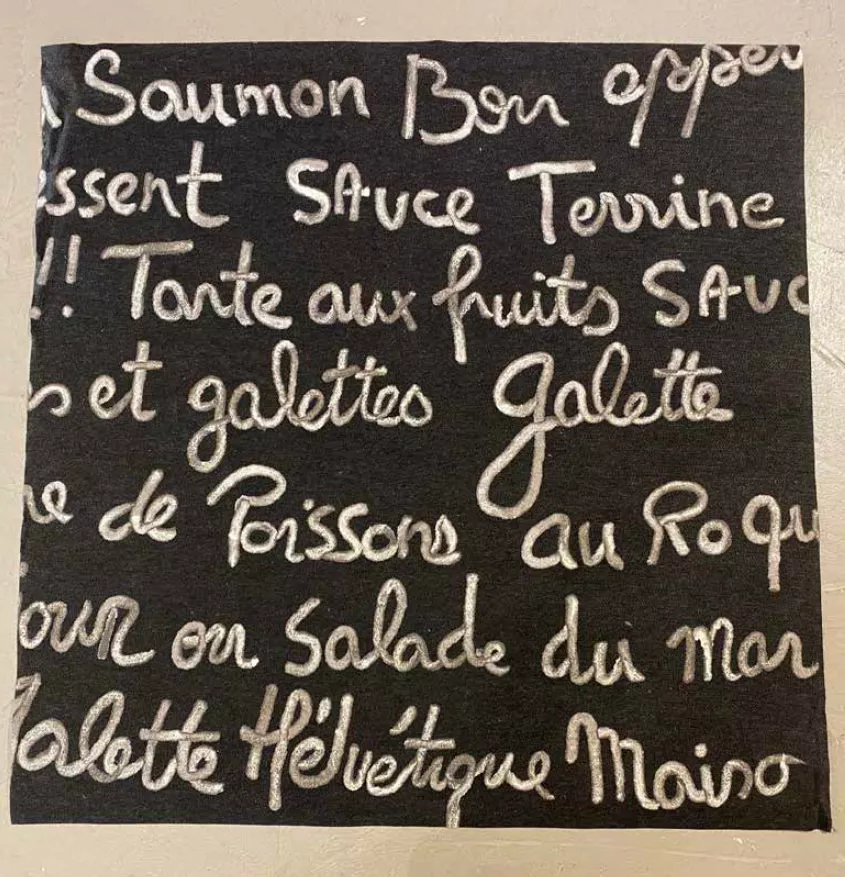 Saumon Bon appe
ssent SAuce Terrine
!! Tarte aux fruits SAuc
s et galettes galette
re de Poissons au Roqu
our ou Salade du mar
alette Hélvétique Maiso